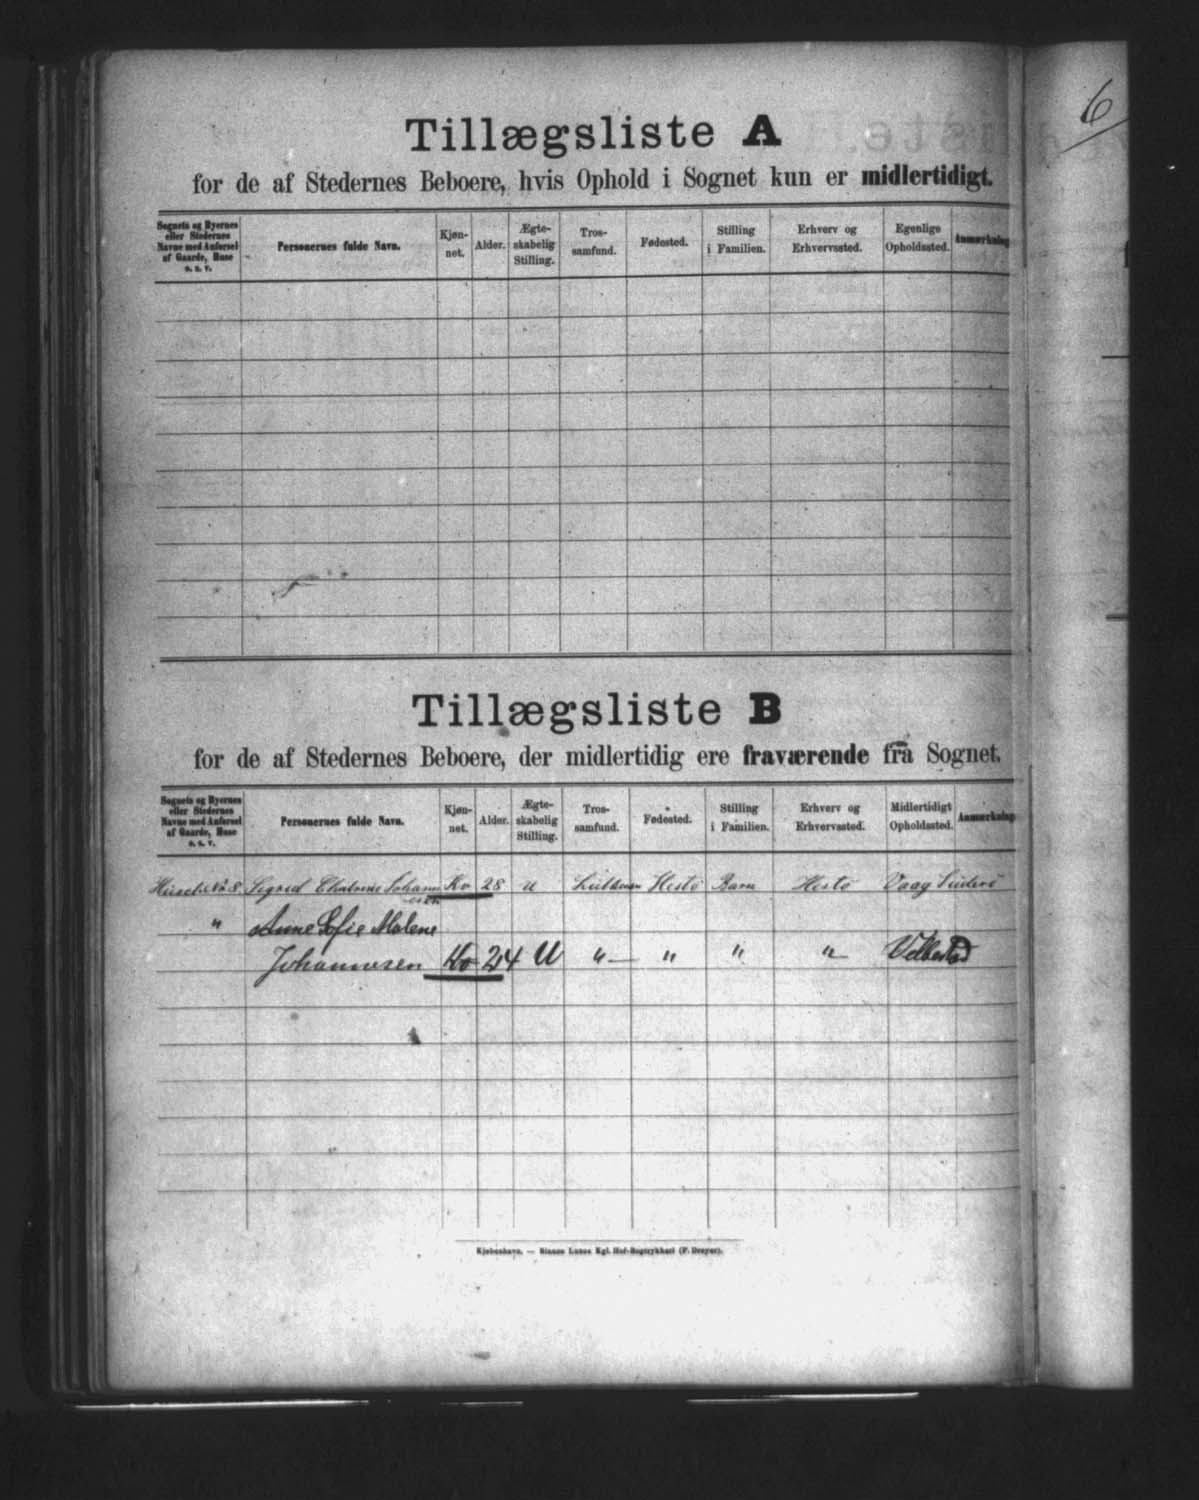 6
Tillægsliste A
for de af Stedernes Beboere, hvis Ophold i Sognet kun er midlertidigt.
Sognets og Byernes eller Stedernes Navne med Anførsel af Gaarde, Huse o. s. v. Personernes fulde Navn. Kjønnet. Alder. Ægteskabelig Stilling. Trossamfund. Fødested. Stilling i Familien. Erhverv og Erhvervssted. Egenlige Opholdssted. Anmærkning
Tillægsliste B
for de af Stedernes Beboere, der midlertidig ere fraværende fra Sognet.
Sognets og Byernes eller Stedernes Navne med Anførsel af Gaarde, Huse o. s. v. Personernes fulde Navn. Kjønnet. Alder. Ægteskabelig Stilling. Trossamfund. Fødested. Stilling i Familien. Erhverv og Erhvervssted. Midlertidigt Opholdssted. Anmærkning
No 8 Sigrid Johannesen Kv 28 U Hestö Barn Hestö Vaag Suderö
" Anne Sofie Malene
Johannesen Kv 24 U " " " "
Kjøbenhavn. — Bianco Lunos Kgl. Hof-Bogtrykkeri (F. Dreyer).